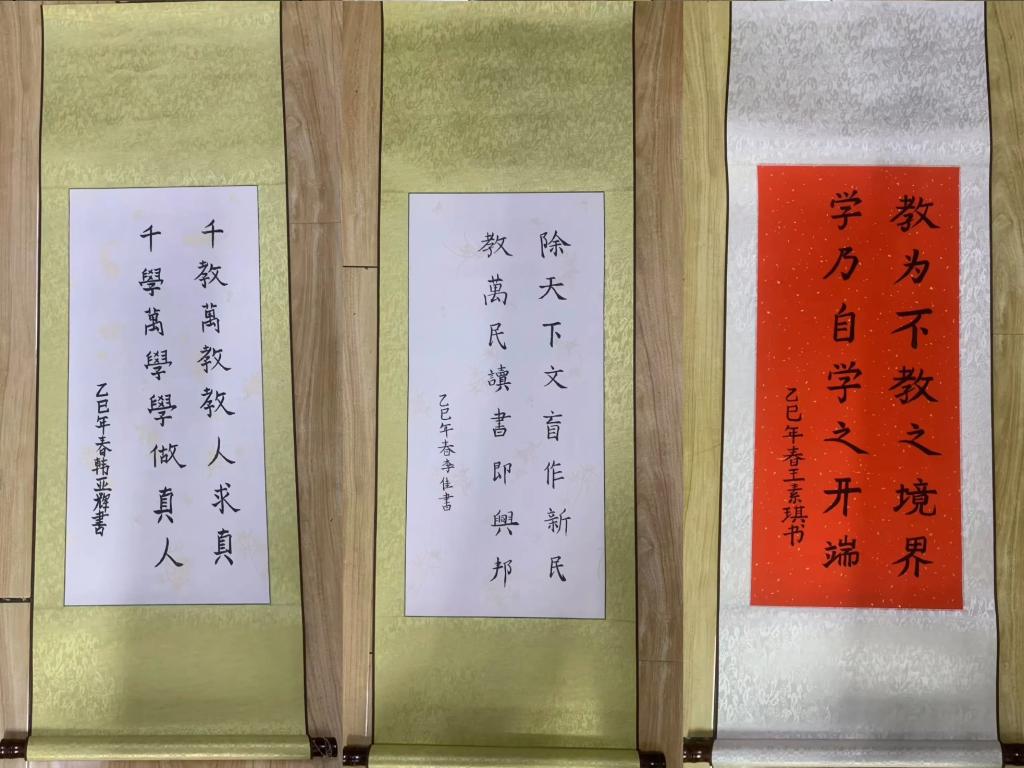 千教萬教教人求真
千學萬學學做真人
乙巳年春韩亚辉書
除天下文盲作新民
教萬民讀書即興邦
乙巳年春李佳書
教为不教之境界
学乃自学之开端
乙巳年春王素琪书